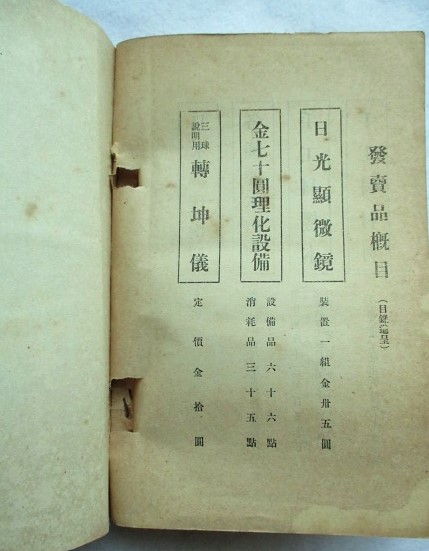 發賣品概目
(目錄進呈)
日光顯微鏡
裝置一組金卅五圓
金七十圓理化設備
設備品六十六點
消耗品三十五點
三球
說明用
轉坤儀
定價金拾圓